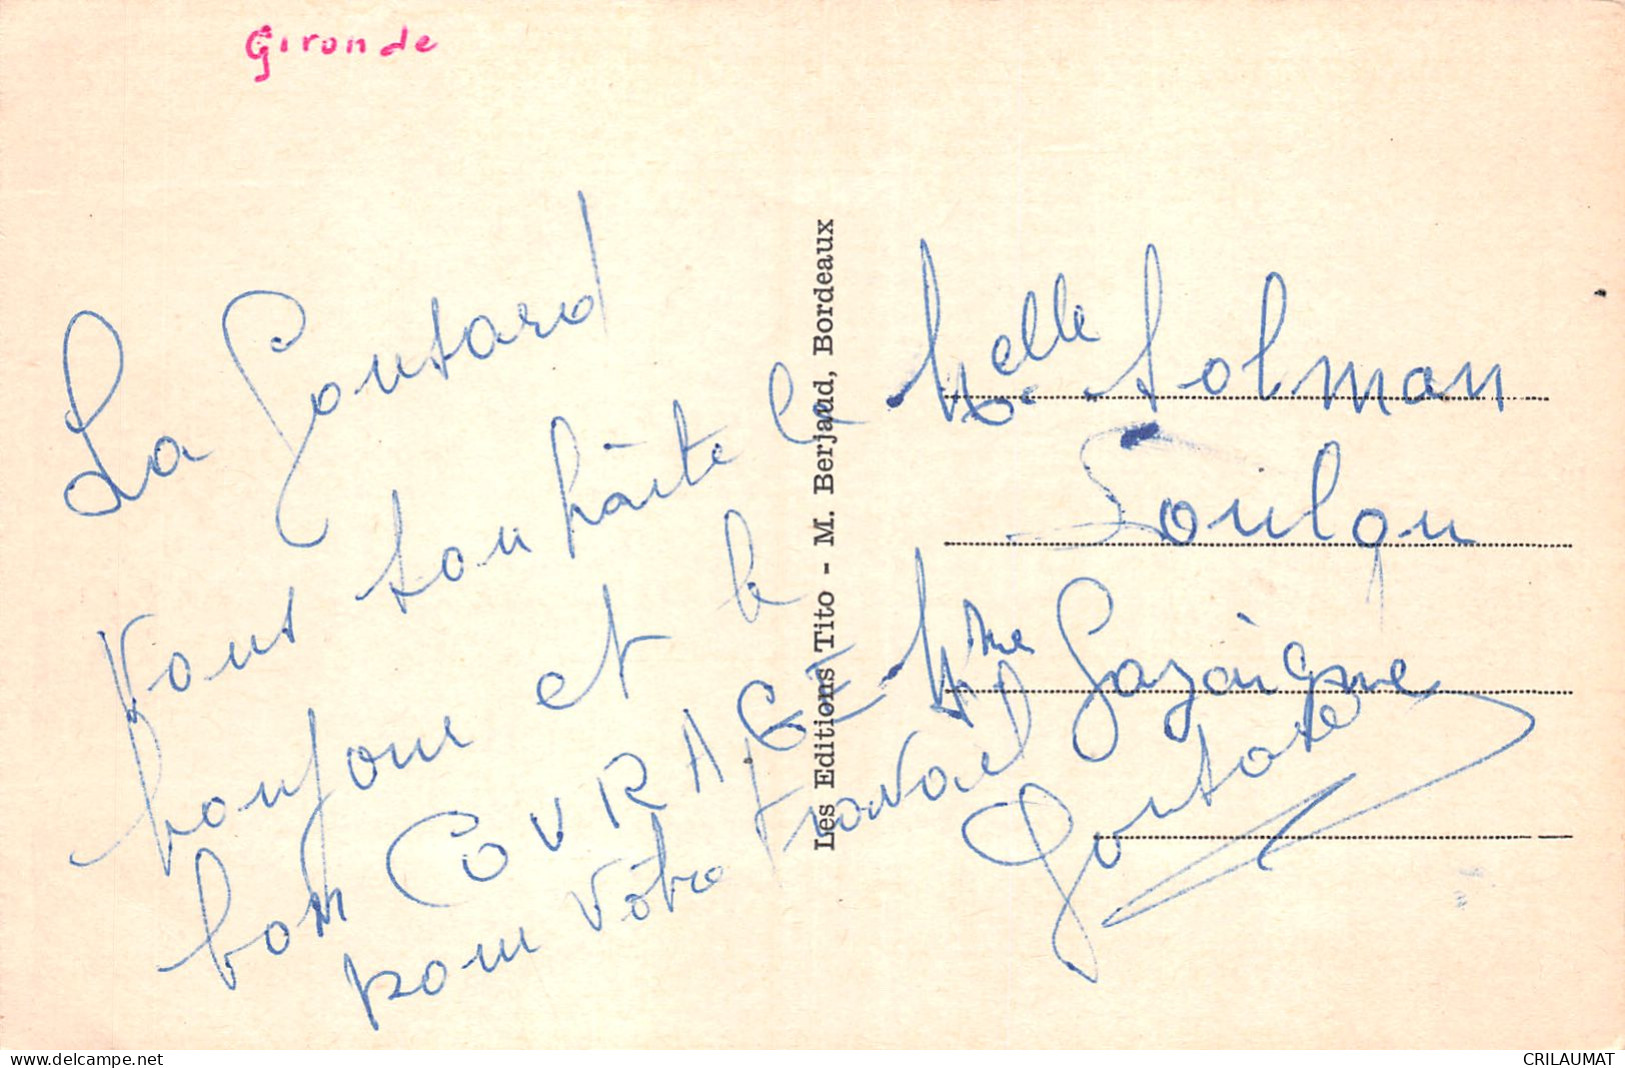 Gironde
La Goutard
Vous souhaite le
bonjour et le
bon COURAGE
pour Votre travail
Les Editions Tito - M. Berjaud, Bordeaux
Melle Solman
Soulqu
Mme Gazaigne
Goutard
delcampe.net
CRILAUMAT